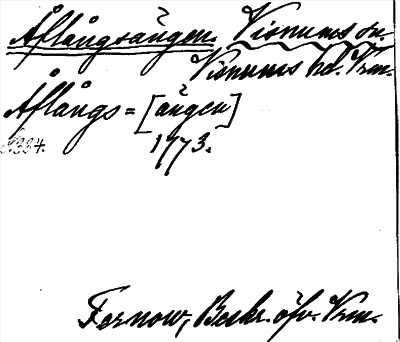 Åflångsängen. Visnums sn.
Visnums hd. Vrm.
Åflångs = [ängen]
s. 334. 1773.
Fernow, Beskr. öfv. Vrm.